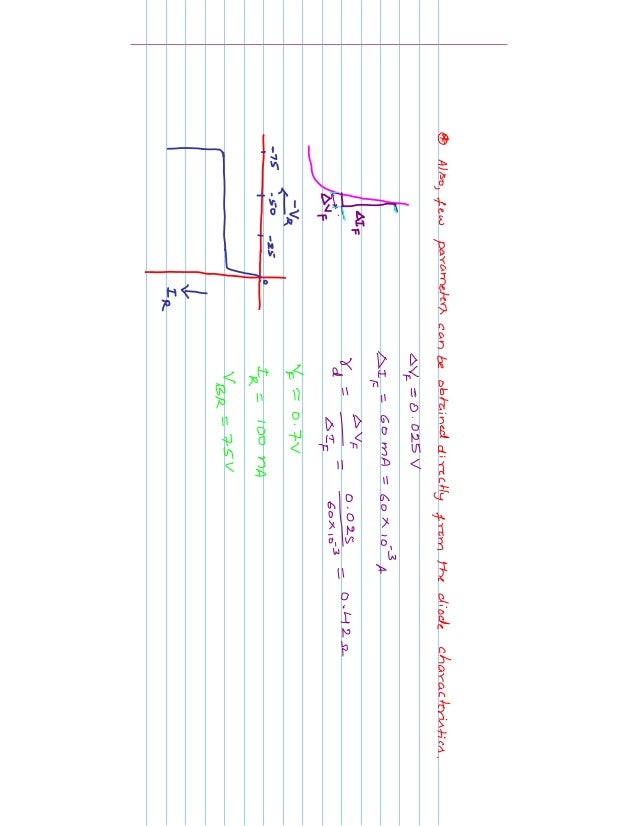 ⊛ Also, few parameters can be obtained directly from the diode characteristics.
ΔV_F = 0.025 V
ΔI_F = 60 mA = 60 × 10⁻³ A
r_d = ΔV_F / ΔI_F = 0.025 / 60×10⁻³ = 0.42 Ω
V_F = 0.7V
I_R = 100 nA
V_BR = 75V
ΔI_F
ΔV_F
-V_R
-75 -50 -25 0
I_R